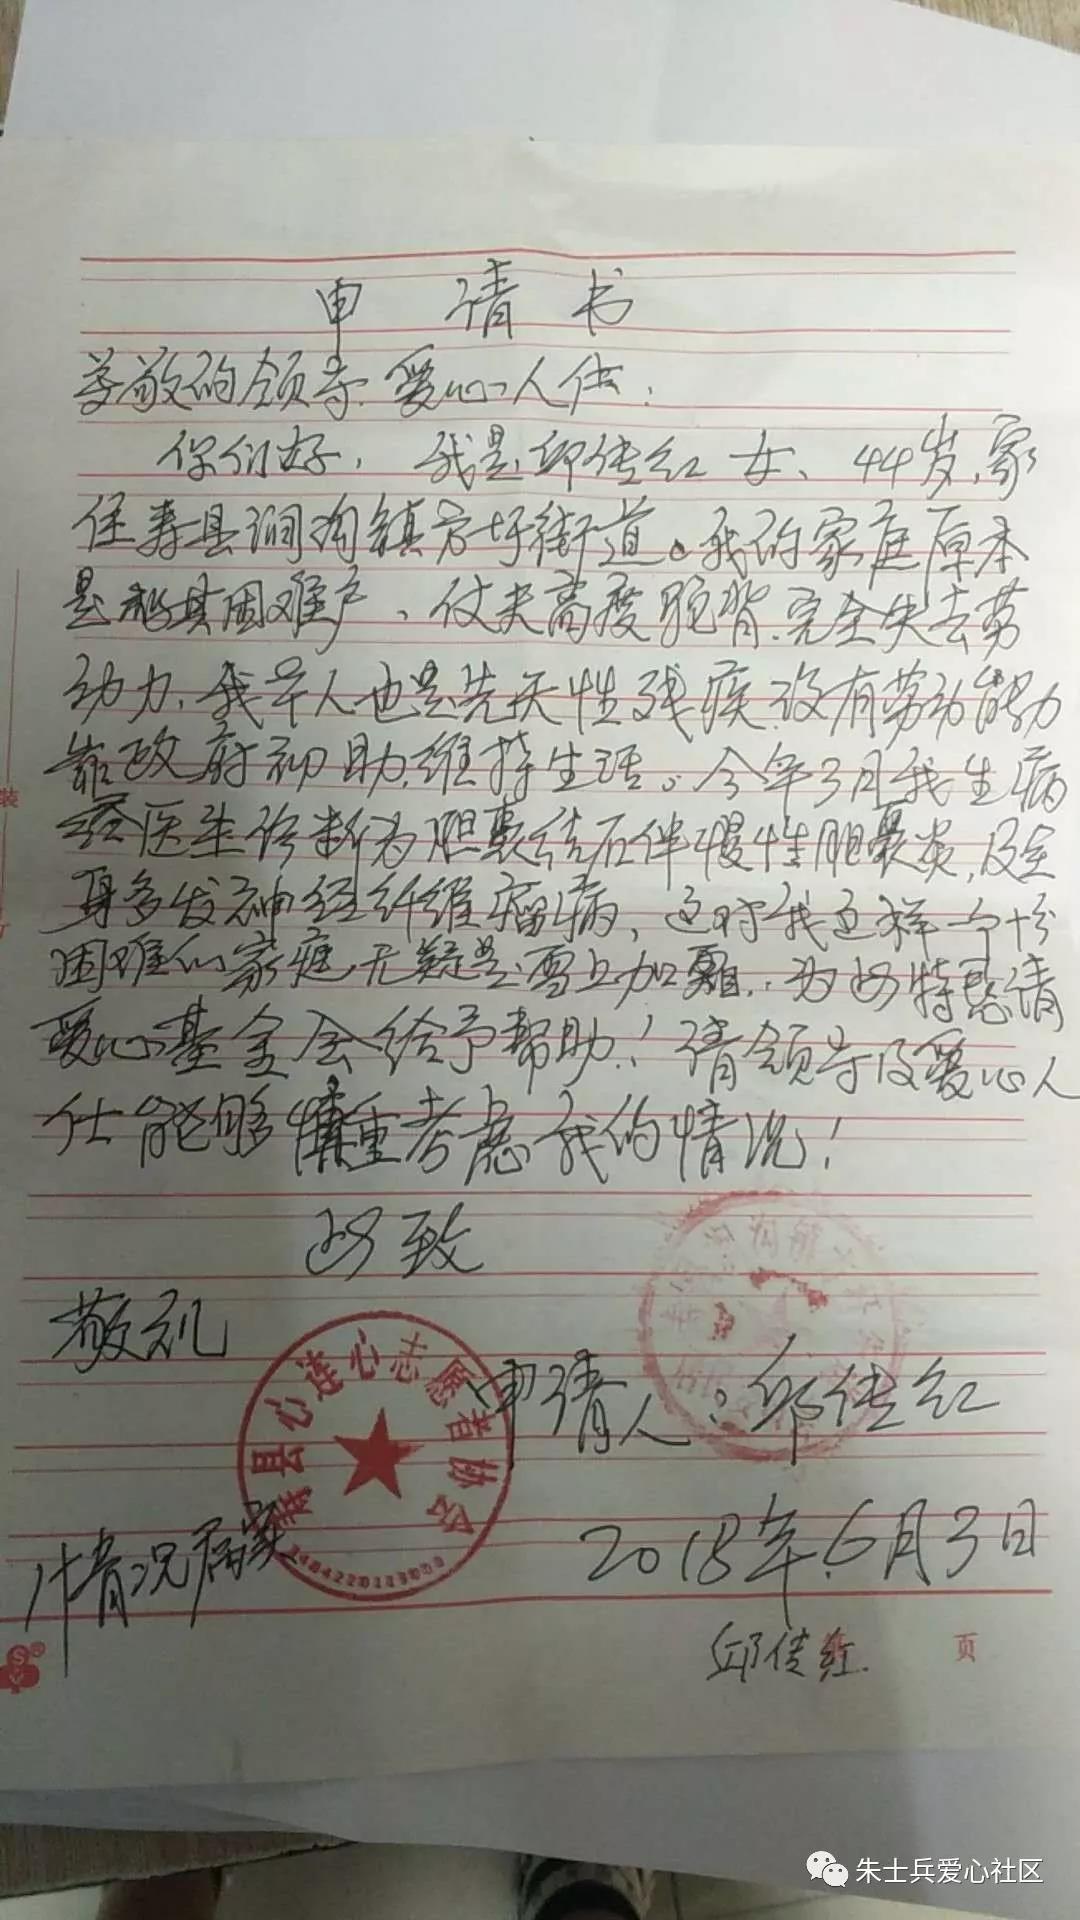 申请书
尊敬的领导、爱心人仕：
你们好，我是邱传红 女、44岁，家
住寿县涧沟镇方圩街道。我的家庭原本
是极其困难户、仗夫高度驼背、完全失去劳
动力，我本人也是先天性残疾、没有劳动能力
靠政府补助、维持生活。今年3月我生病
经医生诊断为胆囊结石伴慢性胆囊炎，及全
身多发神经纤维瘤病，这对我这样一个十分
困难的家庭无疑是雪上加霜，为此特恳请
爱心基金会给予帮助！请领导及爱心人
仕能够慎重考虑我的情况！
此致
敬礼
寿县心连心志愿者协会
申请人：邱传红
情况属实
2018年6月3日
邱传红
页
装
朱士兵爱心社区